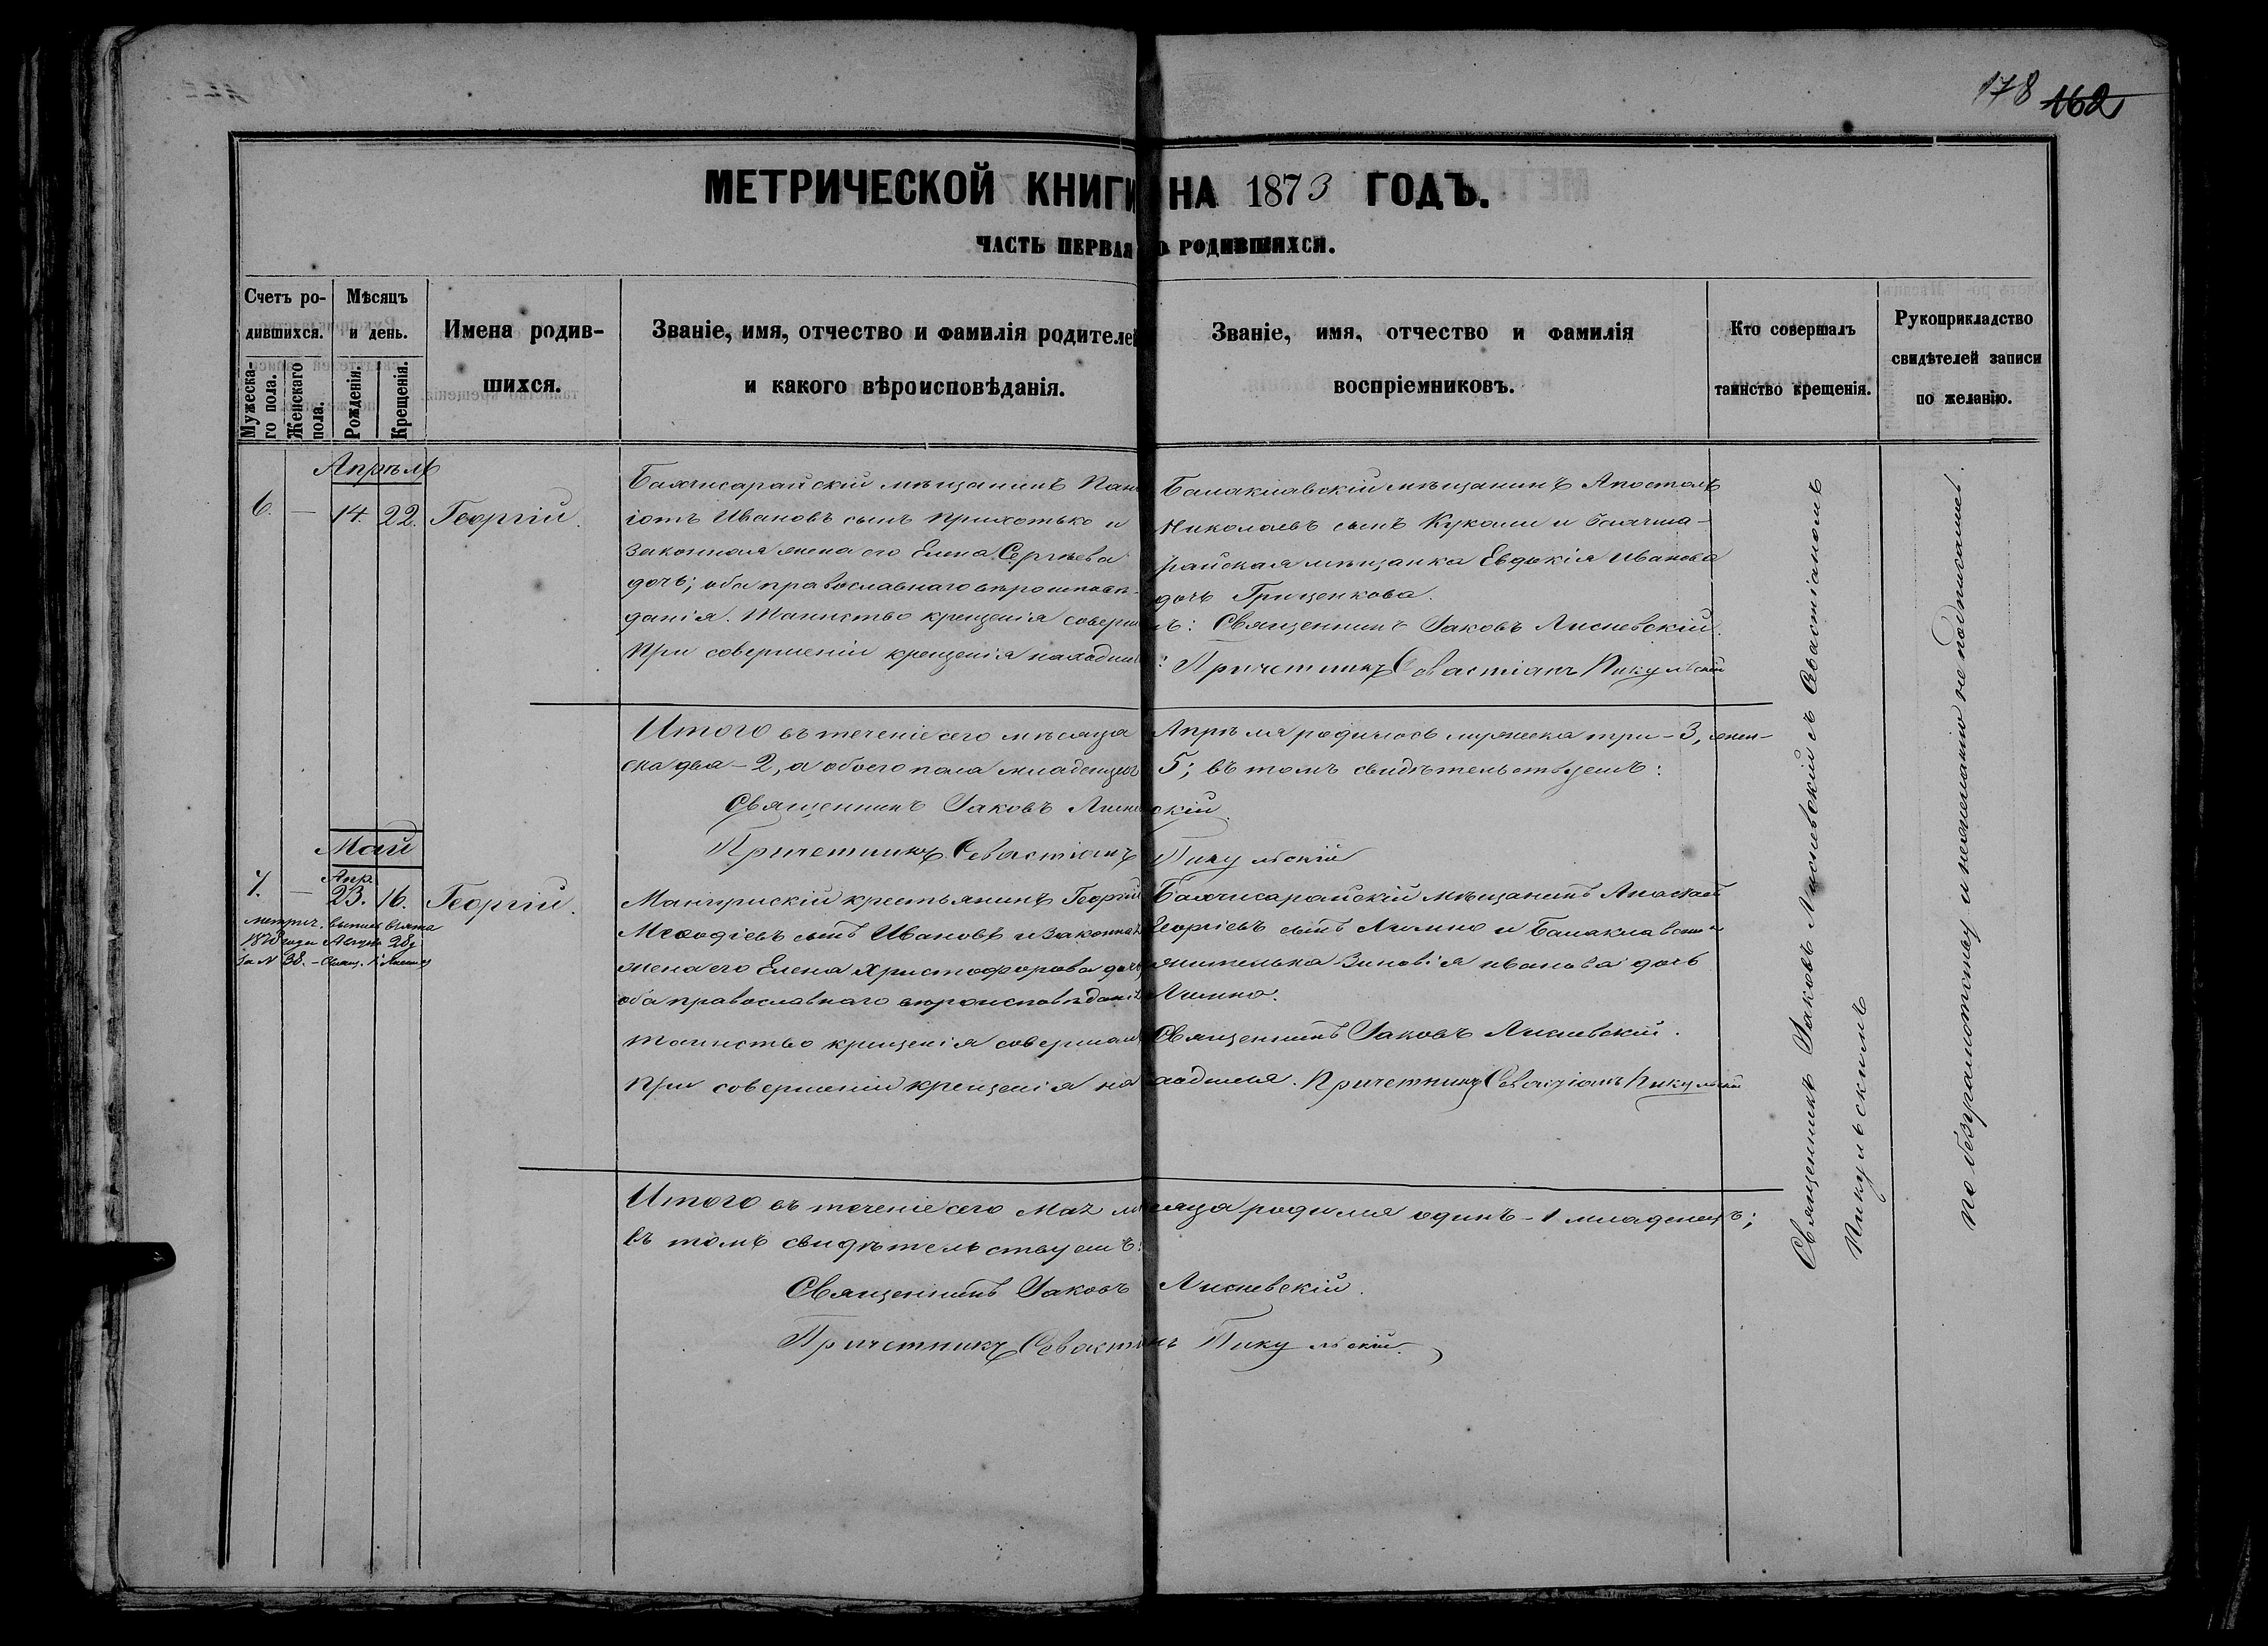 178 162
МЕТРИЧЕСКОЙ КНИГИ НА 1873 ГОДЪ.
ЧАСТЬ ПЕРВАЯ О РОДИВШИХСЯ.
Счетъ ро-
дившихся.
Мужеска-
го пола.
Женскаго
пола.
Мѣсяцъ
и день.
Рожденія.
Крещенія.
Имена родив-
шихся.
Званіе, имя, отчество и фамилія родителей
и какого вѣроисповѣданія.
Званіе, имя, отчество и фамилія
воспріемниковъ.
Кто совершалъ
таинство крещенія.
Рукоприкладство
свидѣтелей записи
по желанію.
Апрѣль
6. — 14. 22. Георгій.
Бахчисарайскій мѣщанинъ Пана
іотъ Ивановъ сынъ Прихотько и
законная жена его Елена Сергѣева
дочь; оба православнаго вѣроисповѣ-
данія. Таинство крещенія соверш
При совершеніи крещенія находил
Балаклавскій мѣщанинъ Апостолъ
Николаевъ сынъ Куколи и Бахчиса-
райская мѣщанка Евдокія Иванова
дочь Гриценкова.
лъ: Священникъ Іаковъ Лисневскій.
: Причетникъ Севастіанъ Пикульскій
Итого въ теченіе сего мѣсяца Апрѣля родилось мужеска три – 3, жен-
ска два – 2, а обоего пола младенцевъ 5; въ томъ свидѣтельствуемъ:
Священникъ Іаковъ Лисневскій.
Причетникъ Севастіанъ Пикульскій
Май
Апр.
7. — 23. 16. Георгій.
метрич. выпись взята
Мангушскій крестьянинъ Георгій
Меѳодіевъ сынъ Ивановъ и законная
жена его Елена Христофорова дочь
оба православнаго вѣроисповѣданія
Таинство крещенія совершалъ
При совершеніи крещенія на
Бахчисарайскій мѣщанинъ
Георгіевъ сынъ Лимно и Балаклавская
жителька Зиновія Иванова дочь
Лимно.
Священникъ Іаковъ Лисневскій.
ходился. Причетникъ Севастіанъ Пикульскій
Итого въ теченіе сего Мая мѣсяца родился одинъ – 1 младенецъ;
въ томъ свидѣтельствуемъ:
Священникъ Іаковъ Лисневскій.
Причетникъ Севастіанъ Пикульскій.
Священникъ Іаковъ Лисневскій съ Севастіаномъ
Пикульскимъ
По безграмотству и нежеланію не подписались.